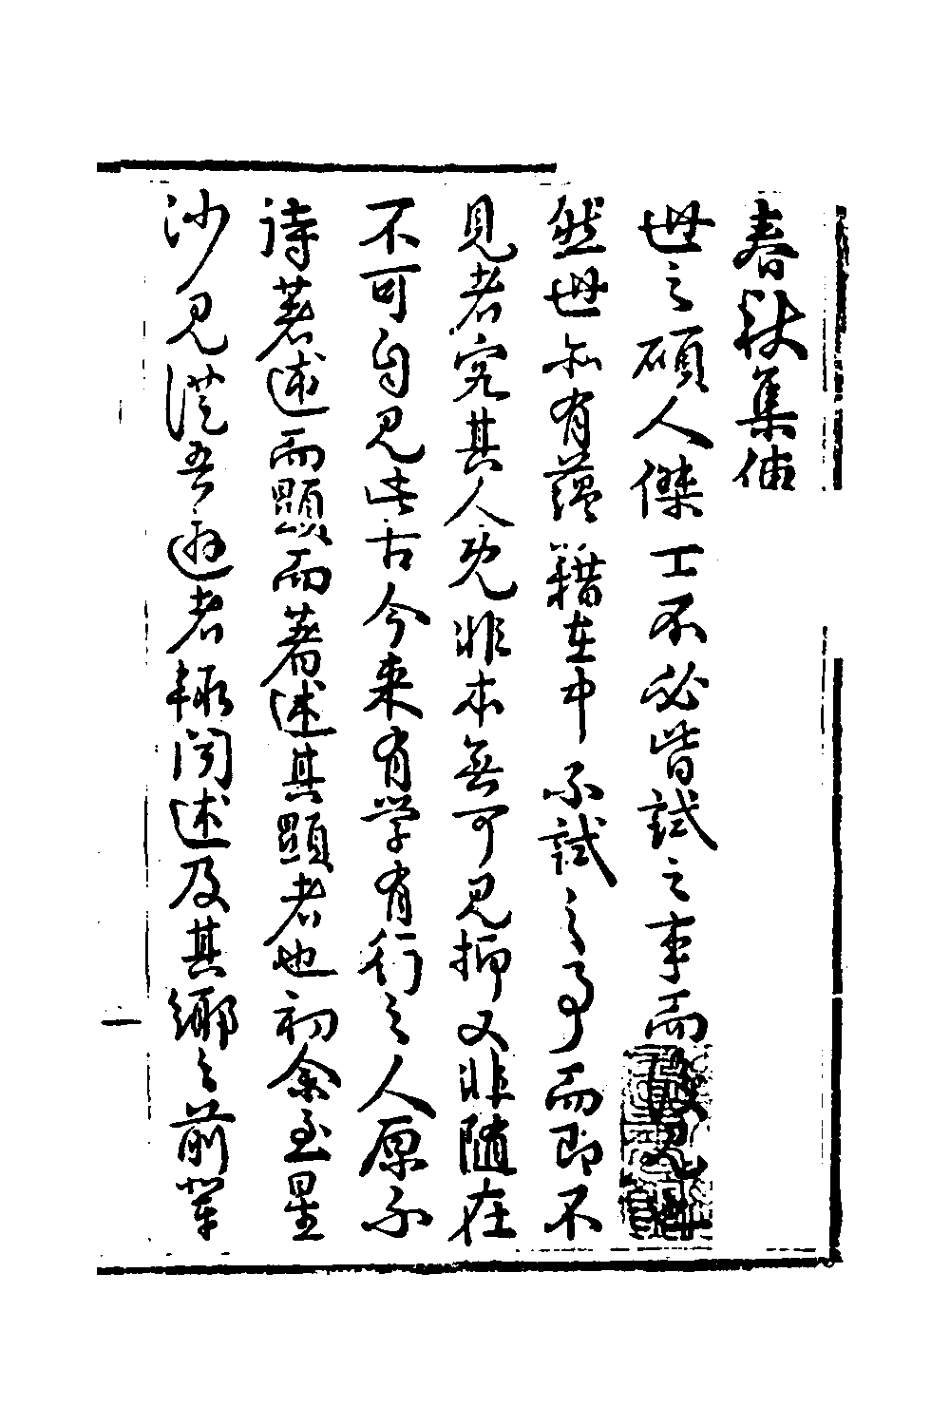 春秋集傳
世之碩人傑士不必皆試之事而後見
然世亦有蘊籍在中不試之事而即不
見者究其人既非本無可見抑又非隨在
不可自見此古今来有学有行之人原不
諱著述而顯而著述其顯者也初余至星
沙見從吾遊者輒聞述及其鄉之前輩
一